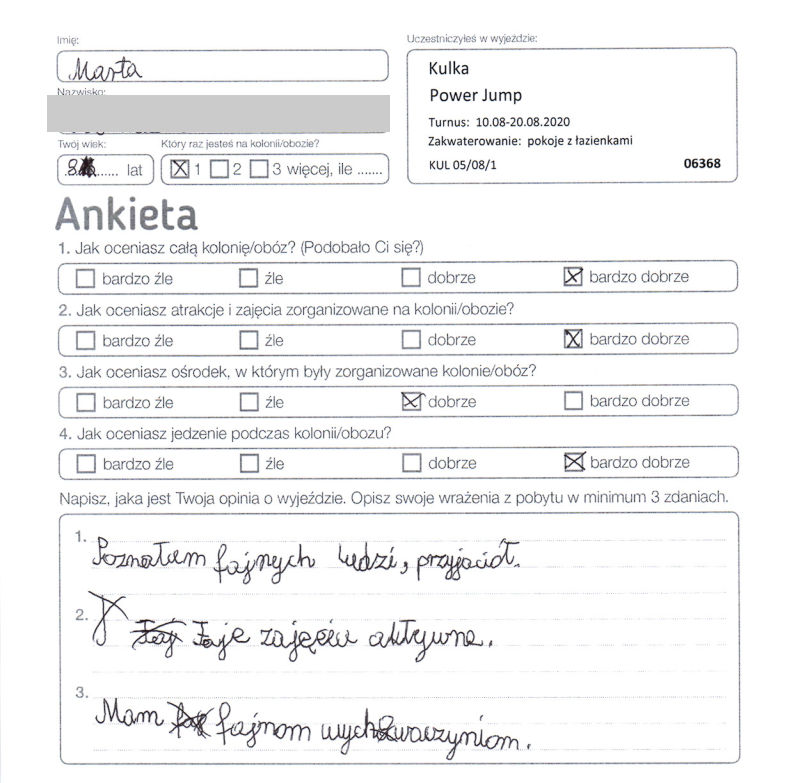 Imię:
Uczestniczyłeś w wyjeździe:
Marta
Kulka
Power Jump
Nazwisko:
Turnus: 10.08-20.08.2020
Zakwaterowanie: pokoje z łazienkami
KUL 05/08/1 06368
Twój wiek: Który raz jesteś na kolonii/obozie?
8 ...... lat 1 2 3 więcej, ile .......
Ankieta
1. Jak oceniasz całą kolonię/obóz? (Podobało Ci się?)
bardzo źle źle dobrze bardzo dobrze
2. Jak oceniasz atrakcje i zajęcia zorganizowane na kolonii/obozie?
bardzo źle źle dobrze bardzo dobrze
3. Jak oceniasz ośrodek, w którym były zorganizowane kolonie/obóz?
bardzo źle źle dobrze bardzo dobrze
4. Jak oceniasz jedzenie podczas kolonii/obozu?
bardzo źle źle dobrze bardzo dobrze
Napisz, jaka jest Twoja opinia o wyjeździe. Opisz swoje wrażenia z pobytu w minimum 3 zdaniach.
1. Poznałam fajnych ludzi, przyjaciół.
2. zajęciu aktywne.
3. Mam fajnom wychowaczyniom.